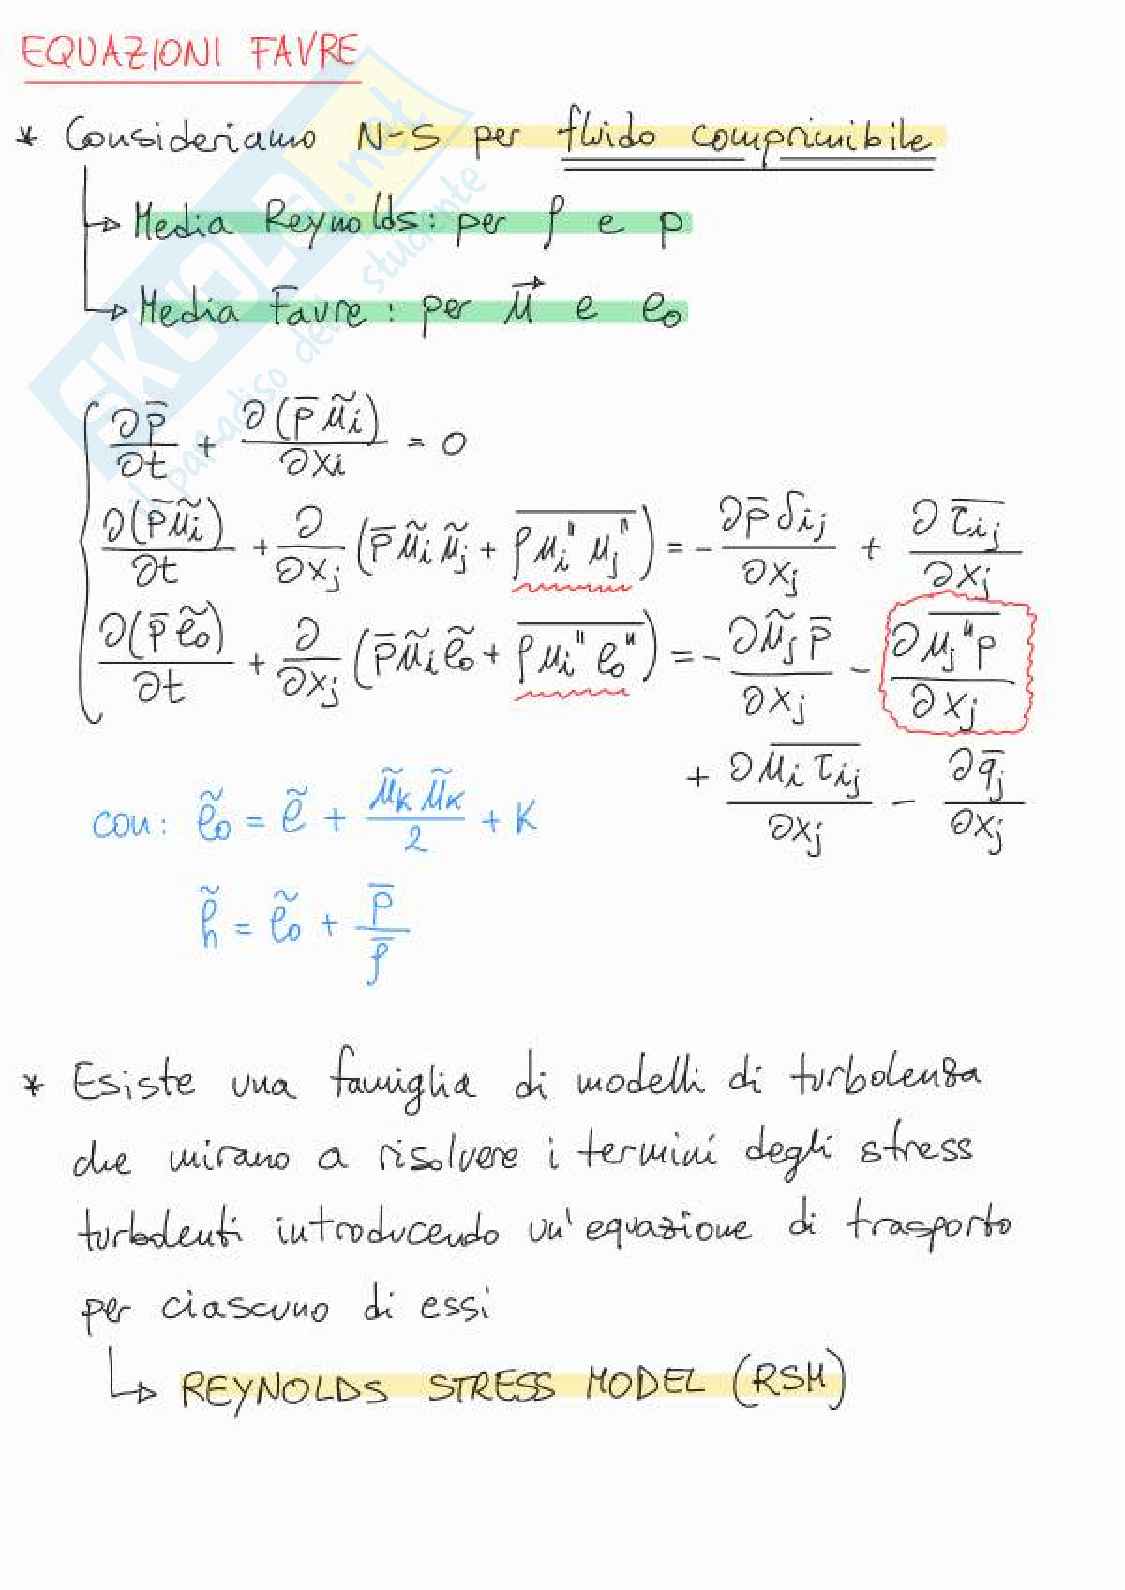 EQUAZIONI FAVRE
* Consideriamo N-S per fluido comprimibile
→ Media Reynolds: per ρ e p
→ Media Favre: per u⃗ e e₀
∂p̅/∂t + ∂(p̅ũᵢ)/∂xᵢ = 0
∂(p̅ũᵢ)/∂t + ∂/∂xⱼ (p̅ũᵢũⱼ + \overline{ρuᵢ"uⱼ"}) = - ∂p̅δᵢⱼ/∂xⱼ + ∂\overline{τᵢⱼ}/∂xⱼ
∂(p̅ẽ₀)/∂t + ∂/∂xⱼ (p̅ũᵢẽ₀ + \overline{ρuᵢ"e₀"}) = - ∂ũⱼp̅/∂xⱼ - ∂\overline{uⱼ"p}/∂xⱼ
+ ∂\overline{uᵢτᵢⱼ}/∂xⱼ - ∂q̅ⱼ/∂xⱼ
con: ẽ₀ = ẽ + ũₖũₖ/2 + K
h̃ = ẽ₀ + p̅/ρ̅
* Esiste una famiglia di modelli di turbolenza
che mirano a risolvere i termini degli stress
turbolenti introducendo un'equazione di trasporto
per ciascuno di essi
→ REYNOLDS STRESS MODEL (RSM)
SKUOLA.net
il paradiso dello studente